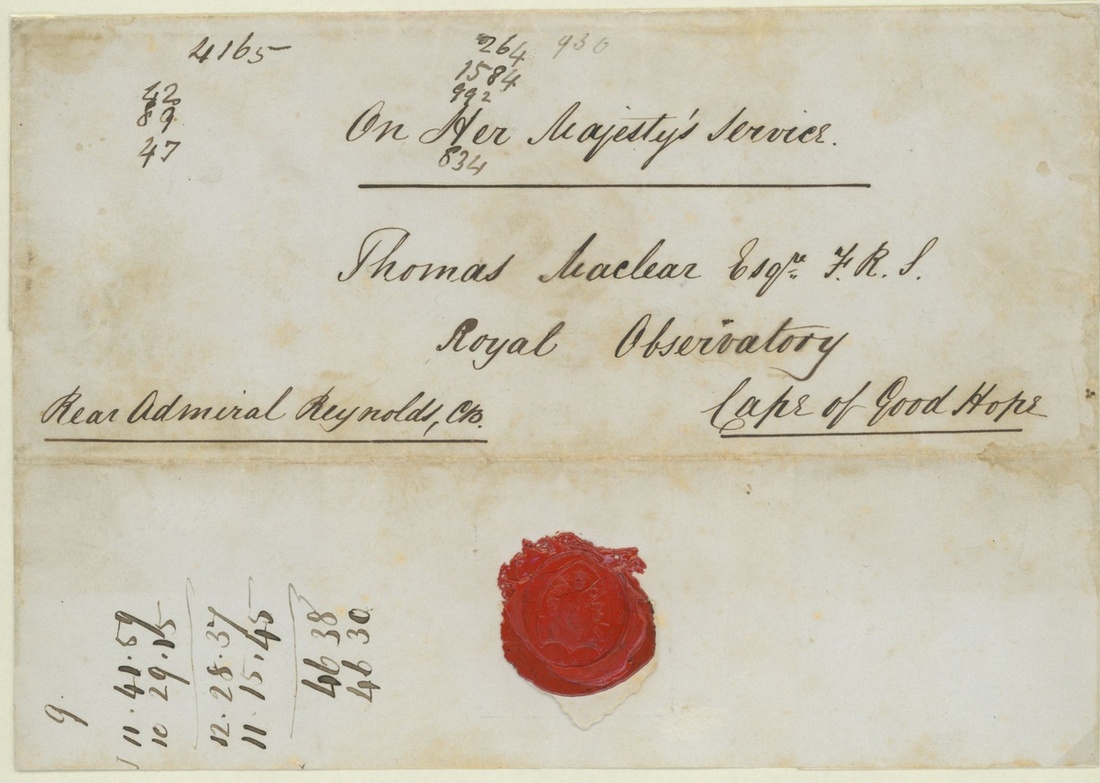 4165
264 930
1584
992
42
89
47
On Her Majesty's Service.
834
Thomas Maclear Esqre. F. R. S.
Royal Observatory
Cape of Good Hope
Rear Admiral Reynolds, CB.
9.
11.41.59
10 29.15
12.28.37
11.15.45
46 38
46 30